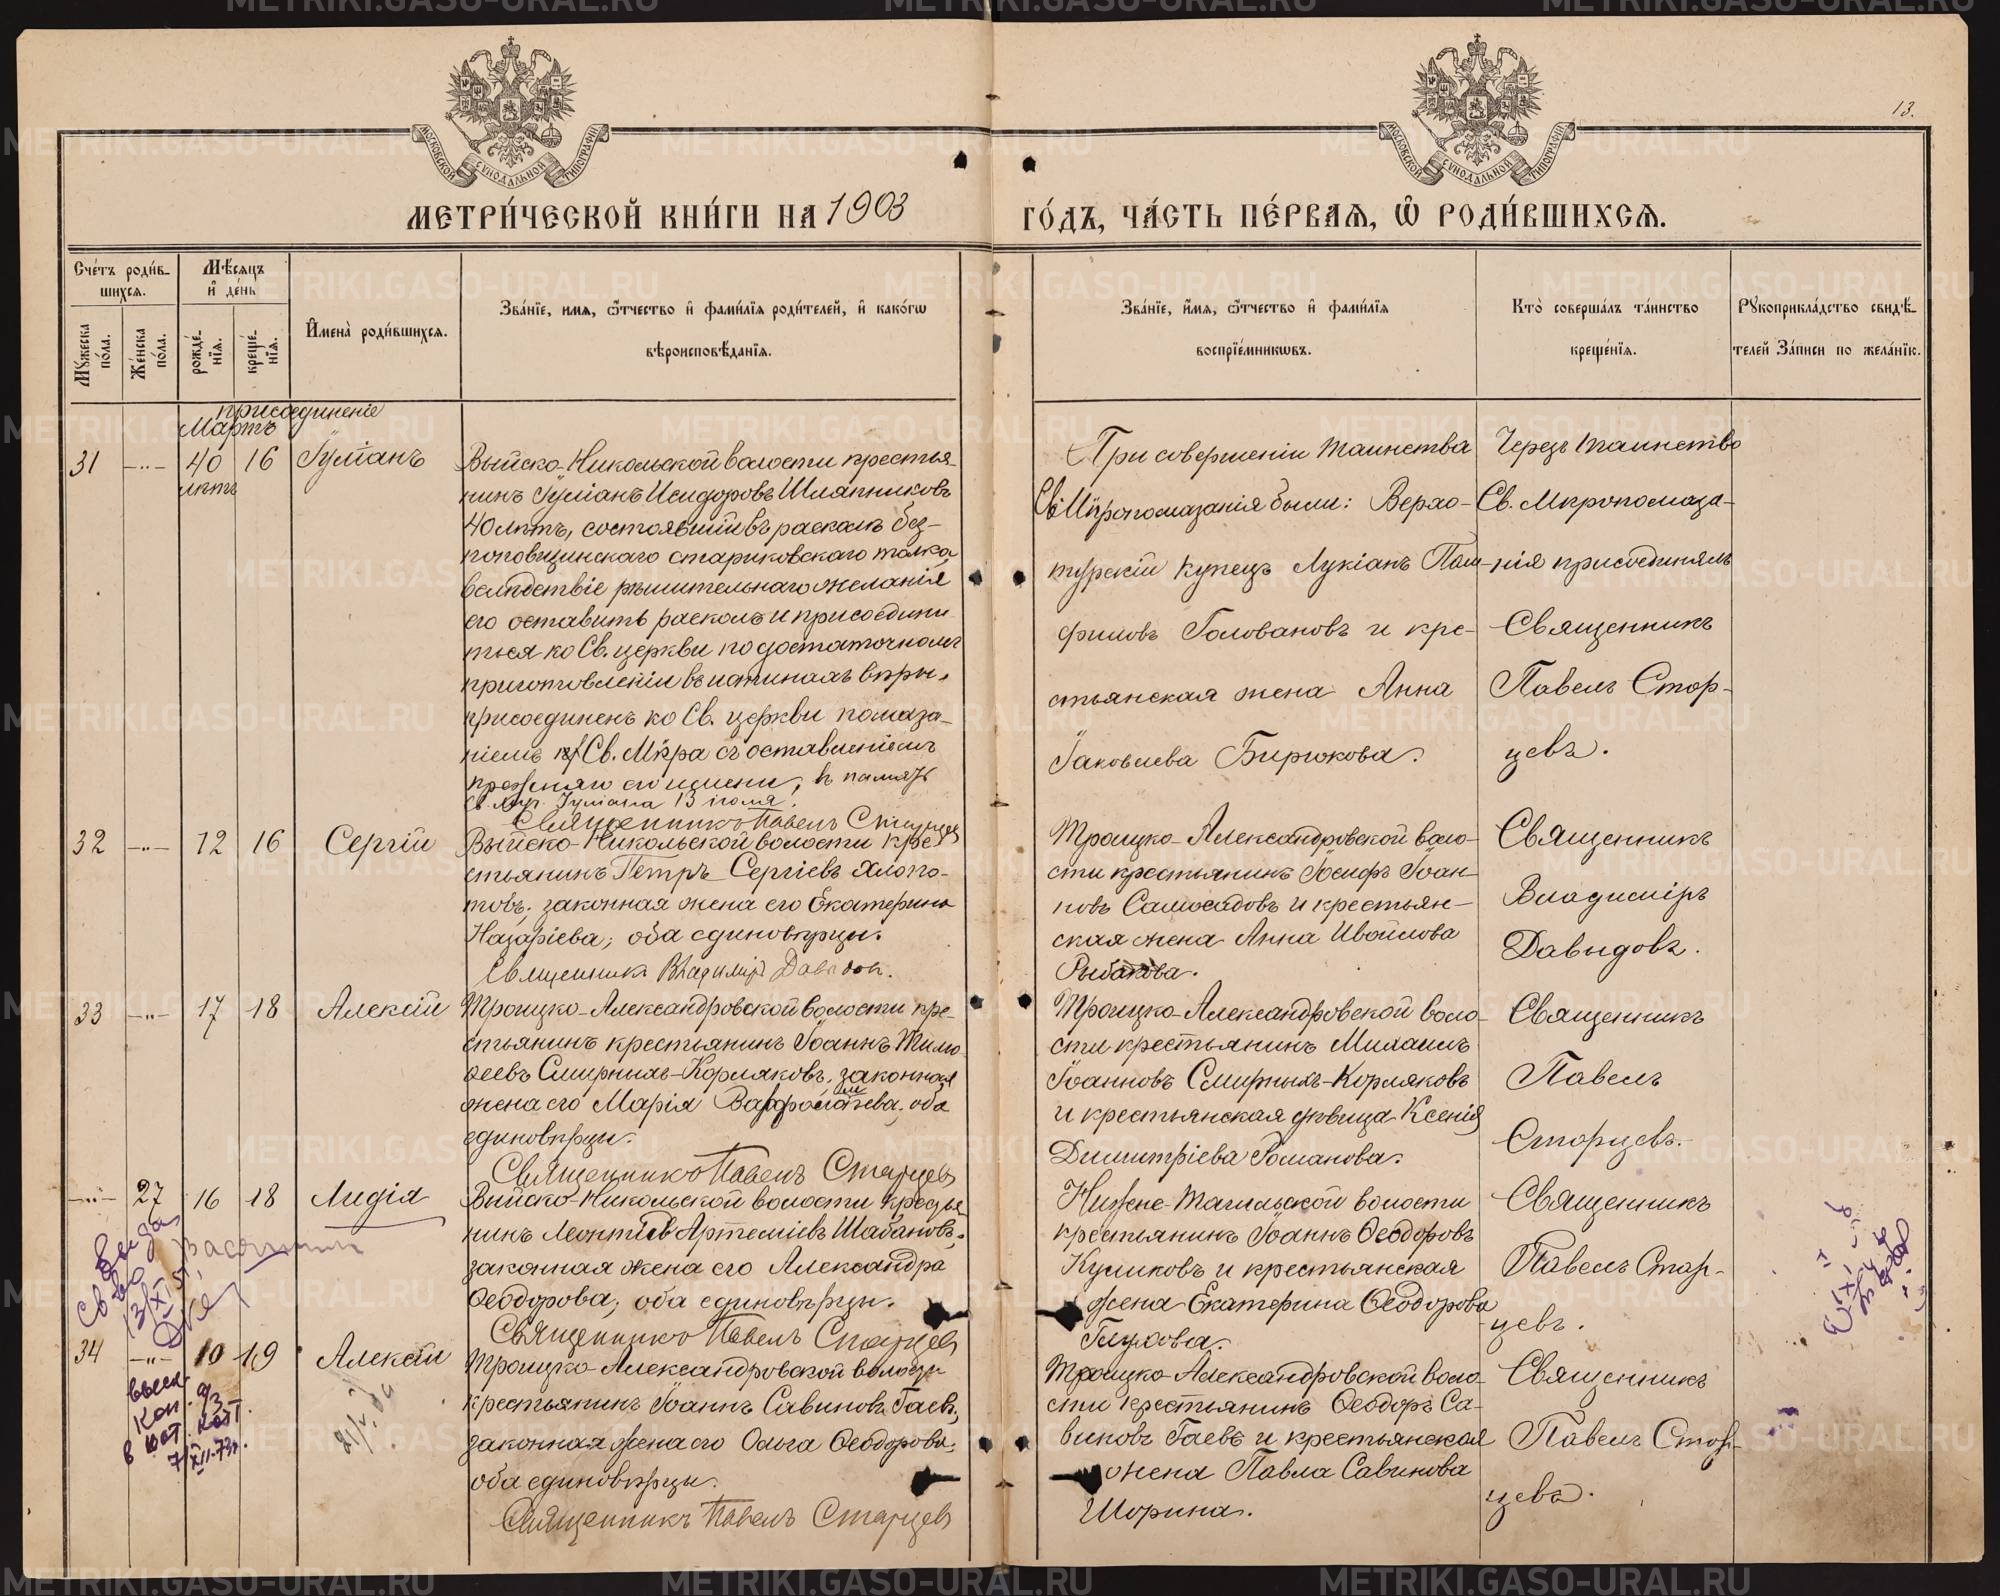 METRIKI.GASO-URAL.RU
13.
МОСКОВСКОЙ СУНОДАЛЬНОЙ ТИПОГРАФІИ
МОСКОВСКОЙ СУНОДАЛЬНОЙ ТИПОГРАФІИ
МЕТРИ́ЧЕСКОЙ КНИ́ГИ НА 1903
ГО́ДЪ, ЧА́СТЬ ПЕ́РВАѦ, Ѽ РОДИ́ВШИХСѦ.
Сче́тъ роди́в-
шихсѧ.
Мѣ́сѧцъ
и҆ де́нь
Мꙋ́жеска по́ла.
Же́нска по́ла.
рожде́-
нїѧ.
креще́-
нїѧ.
И҆мена̀ роди́вшихсѧ.
Зва́нїе, имѧ, ѻ҆́тчество и҆ фами́лїѧ роди́телей, и҆ како́гѡ
вѣроисповѣ́данїѧ.
Зва́нїе, и҆́мѧ, ѻ҆́тчество и҆ фами́лїѧ
воспрїе́мникѡвъ.
Кто̀ соверша́лъ та́инство
креще́нїѧ.
Рꙋкоприкла́дство свидѣ́-
телей За́писи по жела́нїю.
присоединеніе
Мартъ
31 -"- 40 16 Іуліанъ
лѣтъ
Выйско-Никольской волости крестья-
нинъ Іуліанъ Исидоровъ Шляпниковъ
40 лѣтъ, состоявшій въ расколѣ без-
поповщинскаго стариковскаго толка,
вслѣдствіе рѣшительнаго желанія
его оставить расколъ и присоедини-
ться ко Св. церкви по достаточномъ
приготовленіи въ истинахъ вѣры,
присоединенъ ко Св. церкви помаза-
ніемъ Св. Мѵра съ оставленіемъ
прежняго его имени, въ память
Св. Муч. Іуліана 13 іюля.
Священникъ Павелъ Старцев
При совершеніи таинства
Св. Мѵропомазанія были: Верхо-
турскій купецъ Лукіанъ Пам-
филовъ Головановъ и кре-
стьянская жена Анна
Іаковлева Бирюкова.
Черезъ таинство
Св. Мѵропомаза-
нія присоединялъ
Священникъ
Павелъ Стар-
цевъ.
32 -"- 12 16 Сергій
Выйско-Никольской волости кре-
стьянинъ Петръ Сергіевъ Хлопо-
товъ, законная жена его Екатерина
Назаріева, оба единовѣрцы.
Священник Владимір Давыдов.
Троицко-Александровской воло-
сти крестьянинъ Іосифъ Іоан-
новъ Самосадовъ и крестьян-
ская жена Анна Ивойлова
Рыбакова.
Священникъ
Владиміръ
Давыдовъ.
33 -"- 17 18 Алексій
Троицко-Александровской волости кре-
стьянинъ крестьянинъ Іоаннъ Тимо-
феевъ Смирныхъ-Корляковъ, законная
жена его Марія Варфоломеева, оба
единовѣрцы.
Священникъ Павелъ Старцев
Троицко-Александровской воло-
сти крестьянинъ Михаилъ
Іоанновъ Смирныхъ-Корляковъ
и крестьянская дѣвица Ксенія
Димитріева Романова.
Священникъ
Павелъ
Старцевъ.
-"- 27 16 18 Лидія
Выйско-Никольской волости крестья-
нинъ Леонтій Артеміевъ Шабановъ,
законная жена его Александра
Ѳеодорова, оба единовѣрцы.
Священникъ Павелъ Старцев
Нижне-Тагильской волости
крестьянинъ Іоаннъ Ѳеодоровъ
Куликовъ и крестьянская
жена Екатерина Ѳеодорова
Глухова.
Священникъ
Павелъ Стар-
цевъ.
34 -"- 10 19 Алексій
Троицко-Александровской волости
крестьянинъ Іоаннъ Савиновъ Гаевъ,
законная жена его Ольга Ѳеодорова,
оба единовѣрцы.
Священникъ Павелъ Старцев
Троицко-Александровской воло-
сти крестьянинъ Ѳеодоръ Са-
виновъ Гаевъ и крестьянская
жена Павла Савинова
Шорина.
Священникъ
Павелъ Стар-
цевъ.
высл.
коп.
7/XII-73г.